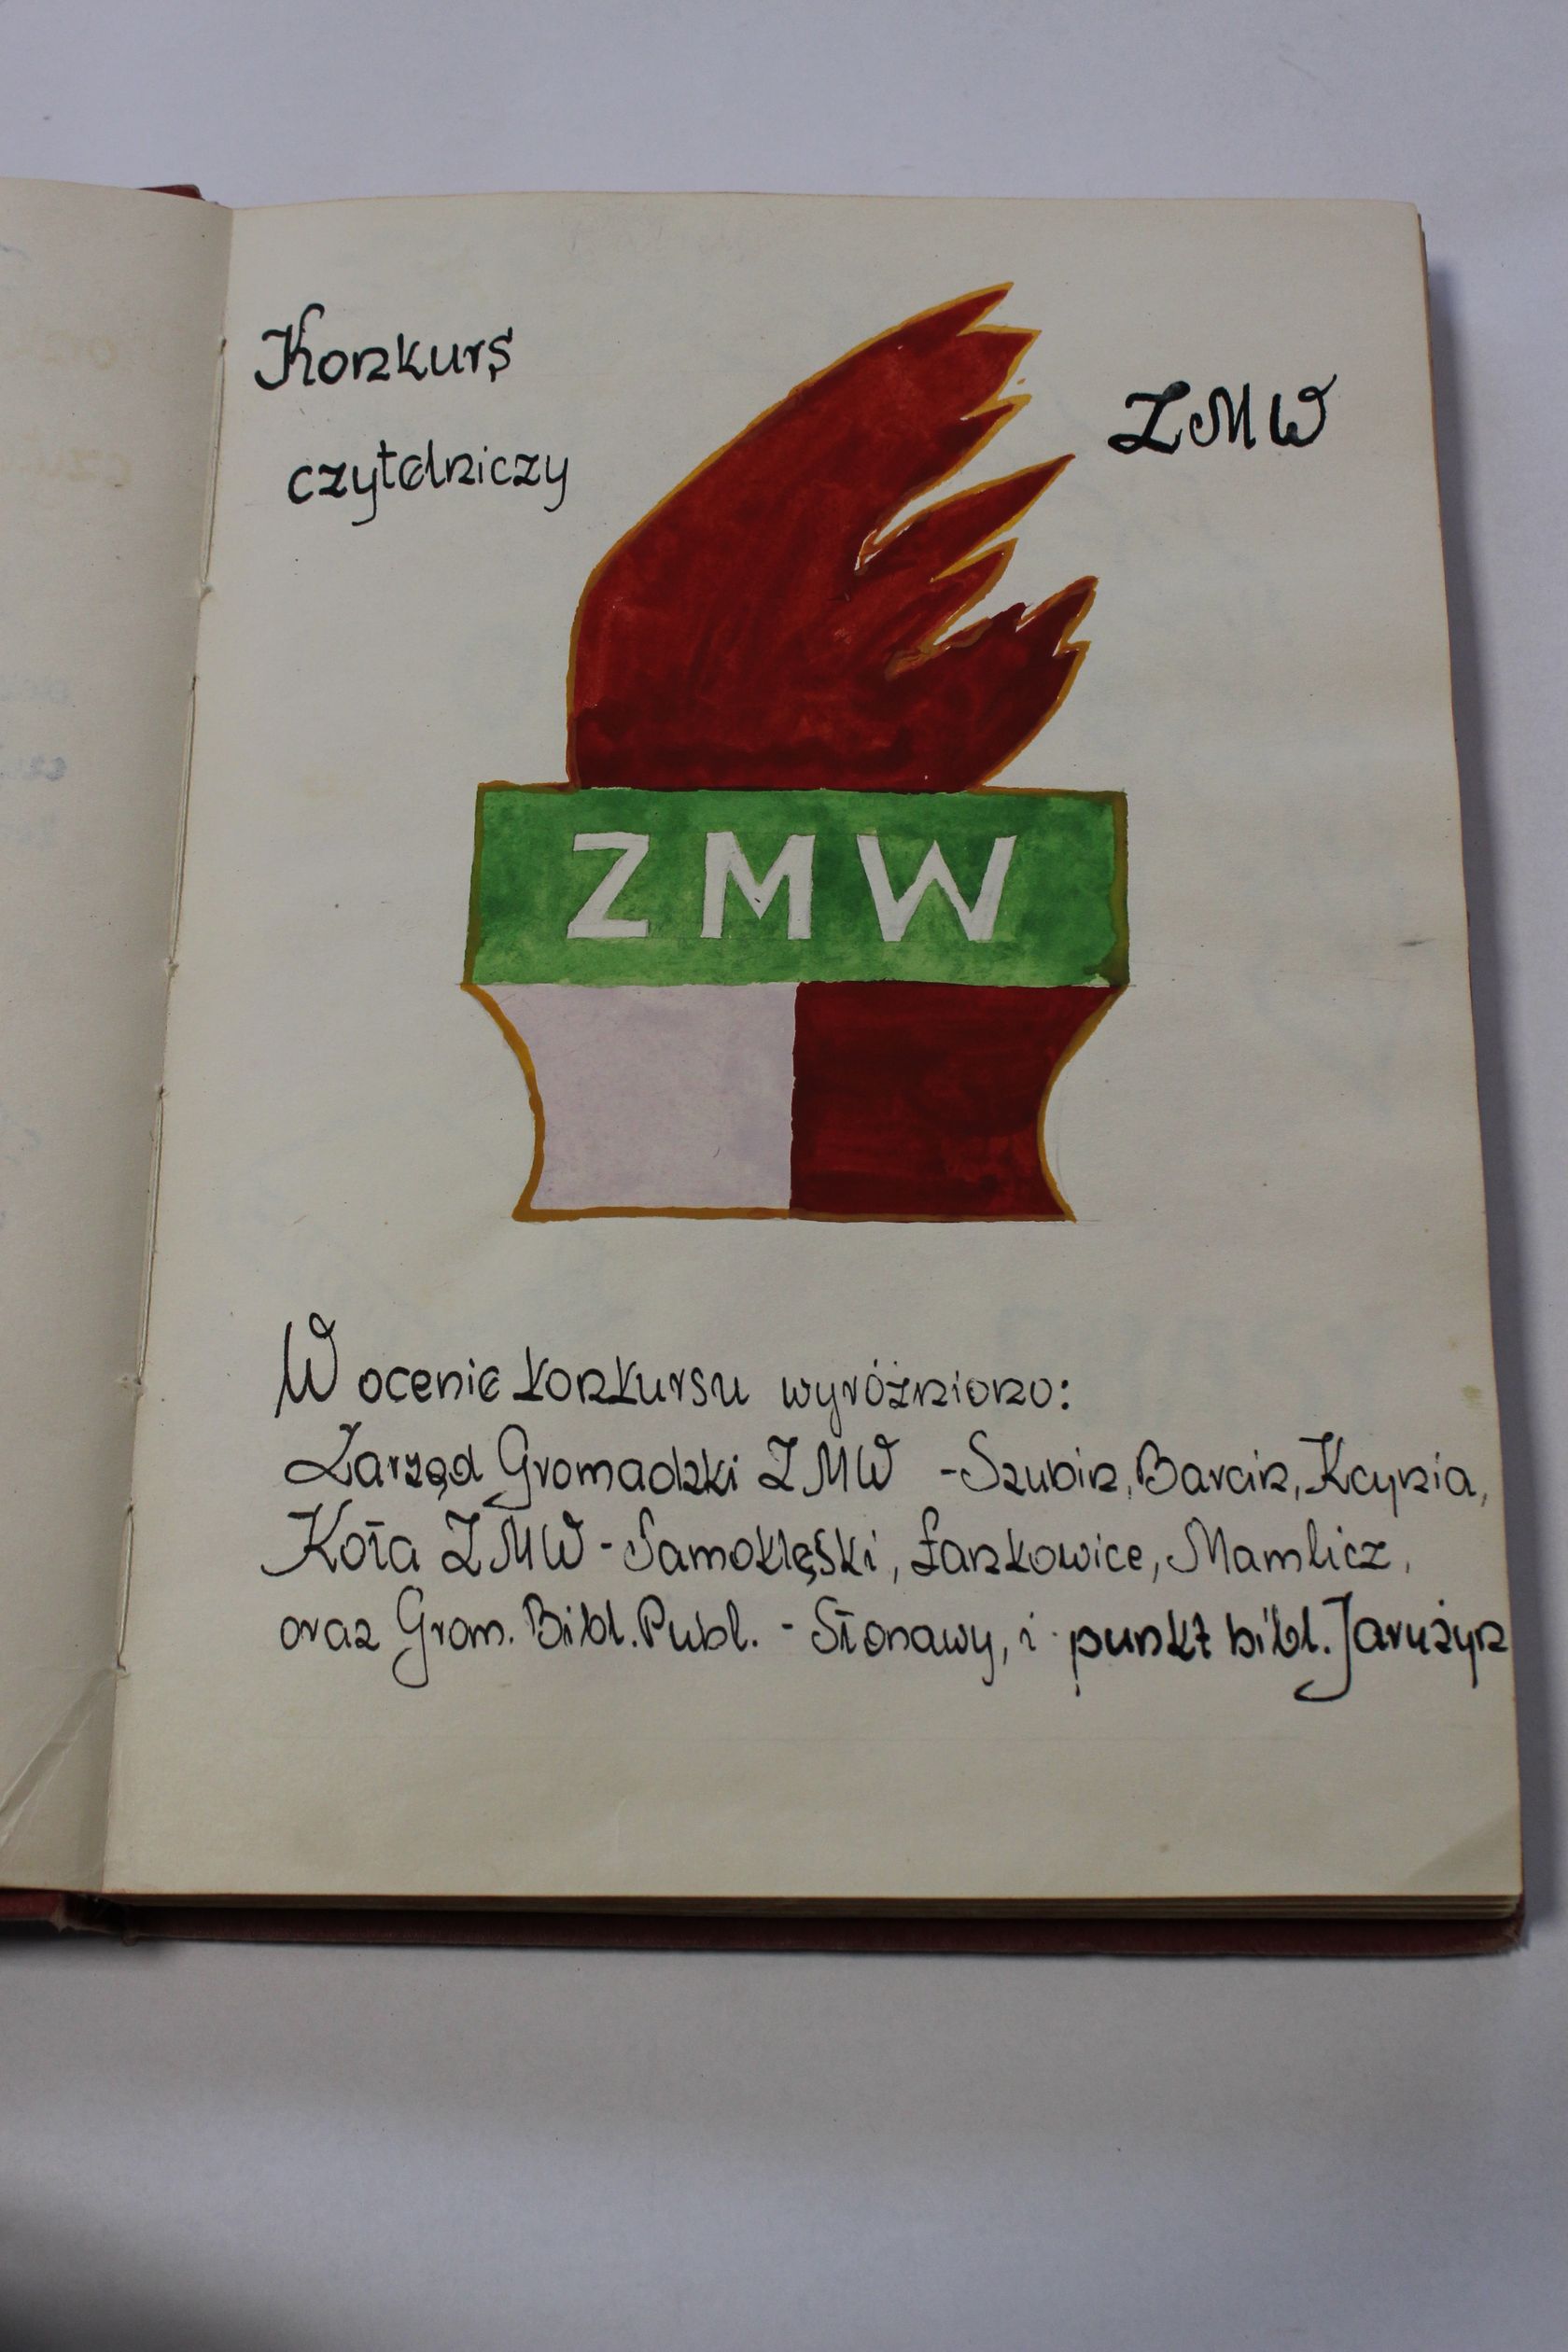 Konkurs
czytelniczy
ZMW
ZMW
W ocenie konkursu wyróżniono:
Zarząd Gromadzki ZMW - Szubin, Barcin, Kcynia,
Koła ZMW - Samoklęski, Łankowice, Mamlicz,
oraz Grom. Bibl. Publ. - Słonawy, i punkt bibl. Jarużyn